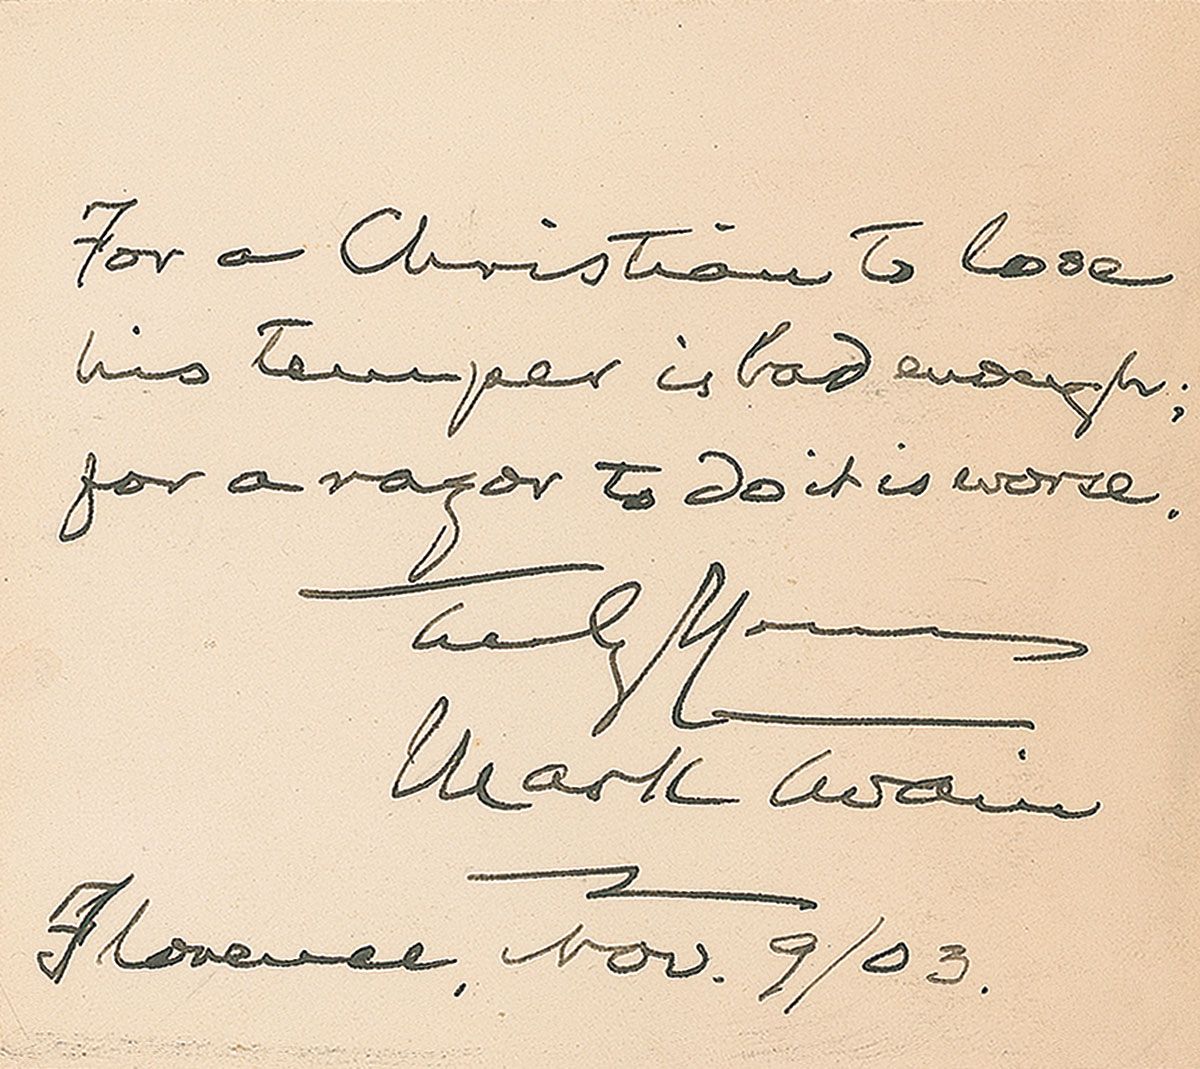 For a Christian to lose
his temper is bad enough;
for a razor to do it is worse.
Truly Yours
Mark Twain
Florence, Nov. 9/03.